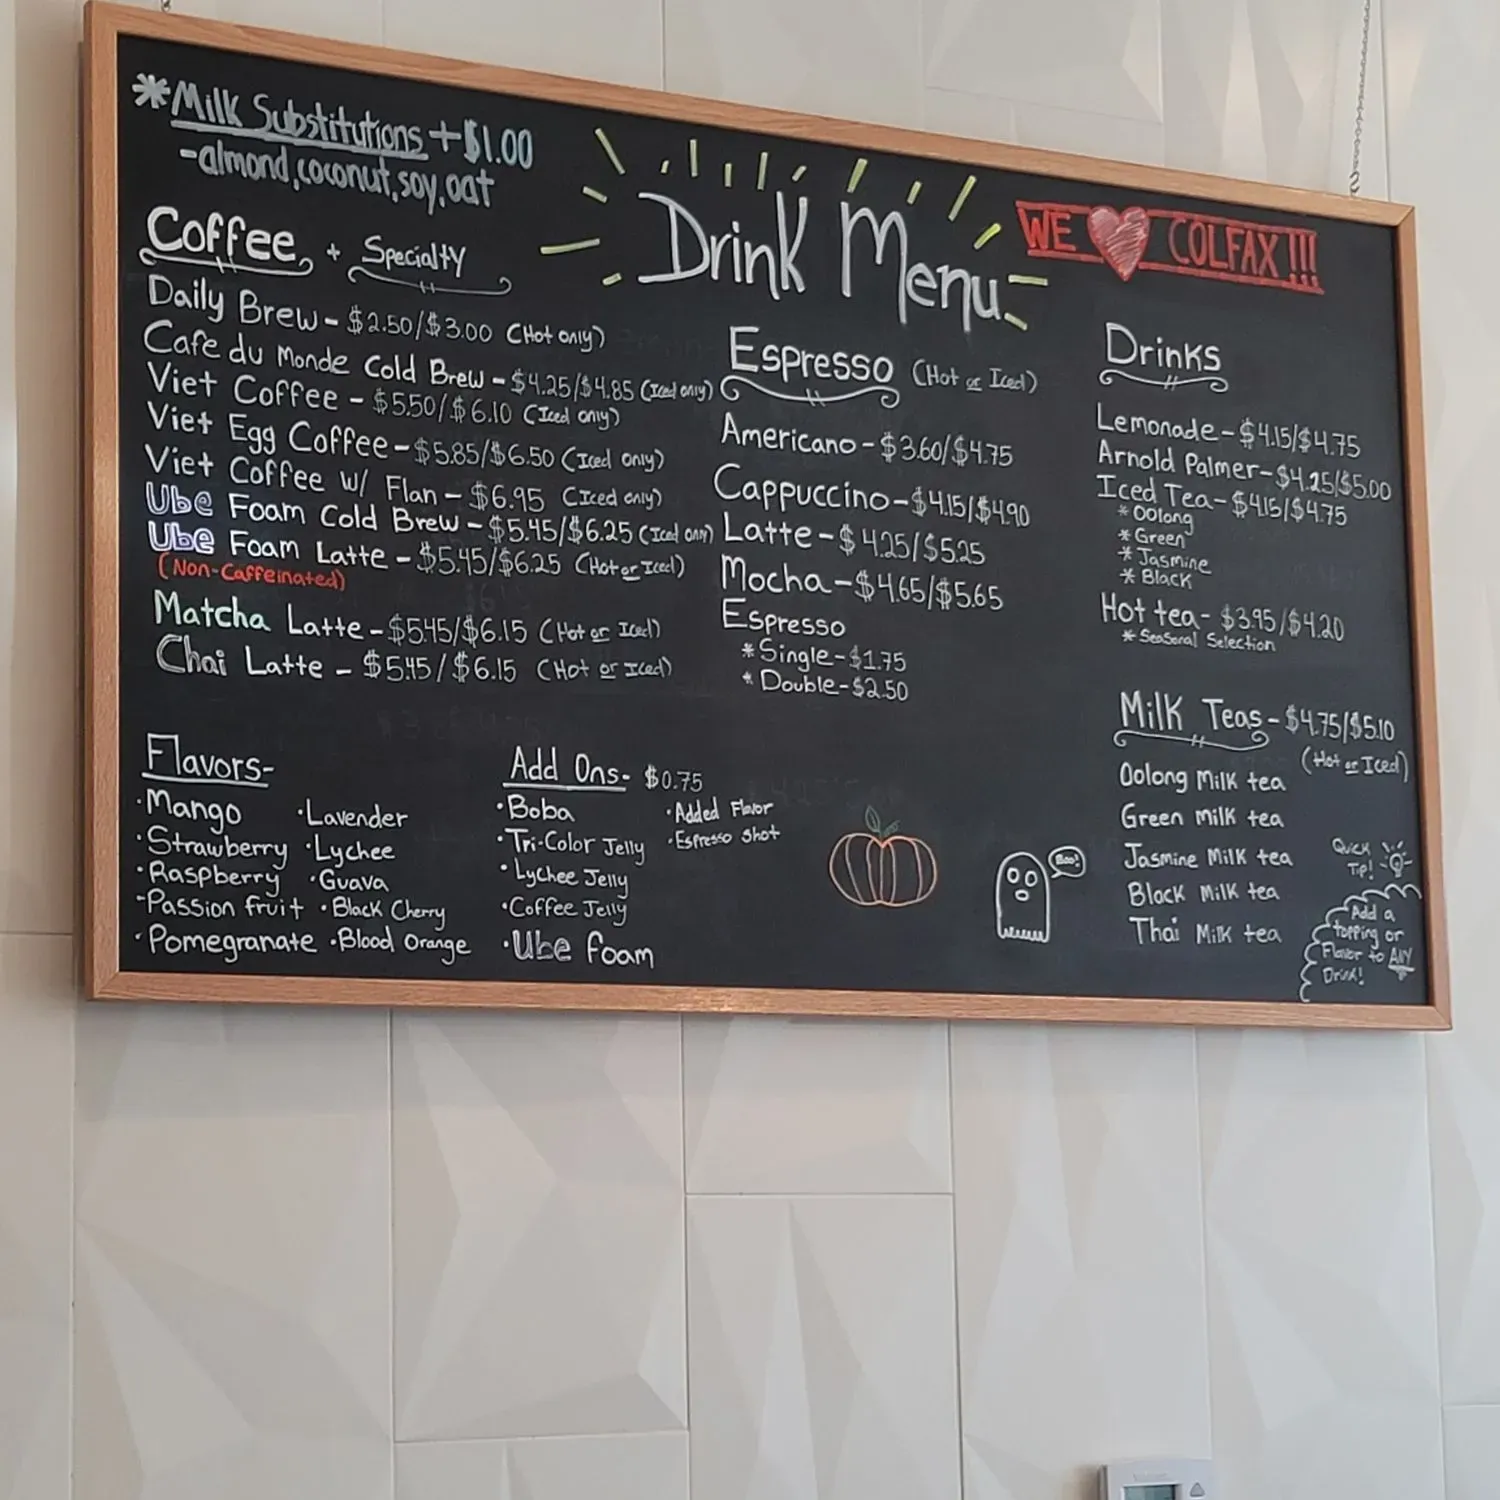 *Milk Substitutions +$1.00
-almond, coconut, soy, oat
Drink Menu
WE ❤ COLFAX!!!
Coffee + Specialty
Daily Brew - $2.50/$3.00 (Hot only)
Cafe du Monde Cold Brew - $4.25/$4.85 (Iced only)
Viet Coffee - $5.50/$6.10 (Iced only)
Viet Egg Coffee - $5.85/$6.50 (Iced only)
Viet Coffee w/ Flan - $6.95 (Iced only)
Ube Foam Cold Brew - $5.45/$6.25 (Iced only)
Ube Foam Latte - $5.45/$6.25 (Hot or Iced)
(Non-Caffeinated)
Matcha Latte - $5.45/$6.15 (Hot or Iced)
Chai Latte - $5.45/$6.15 (Hot or Iced)
Espresso (Hot or Iced)
Americano - $3.60/$4.75
Cappuccino - $4.15/$4.90
Latte - $4.25/$5.25
Mocha - $4.65/$5.65
Espresso
* Single - $1.75
* Double - $2.50
Drinks
Lemonade - $4.15/$4.75
Arnold Palmer - $4.25/$5.00
Iced Tea - $4.15/$4.75
* Oolong
* Green
* Jasmine
* Black
Hot tea - $3.95/$4.20
* Seasonal Selection
Milk Teas - $4.75/$5.10
(Hot or Iced)
Oolong Milk tea
Green milk tea
Jasmine Milk tea
Black Milk tea
Thai Milk tea
Flavors-
·Mango
·Strawberry
·Raspberry
-Passion fruit
·Pomegranate
·Lavender
·Lychee
·Guava
·Black Cherry
·Blood Orange
Add Ons- $0.75
·Boba
·Tri-Color Jelly
·Lychee Jelly
·Coffee Jelly
·Ube foam
·Added Flavor
·Espresso Shot
Boo!
Quick
Tip!
Add a
topping or
Flavor to ANY
Drink!